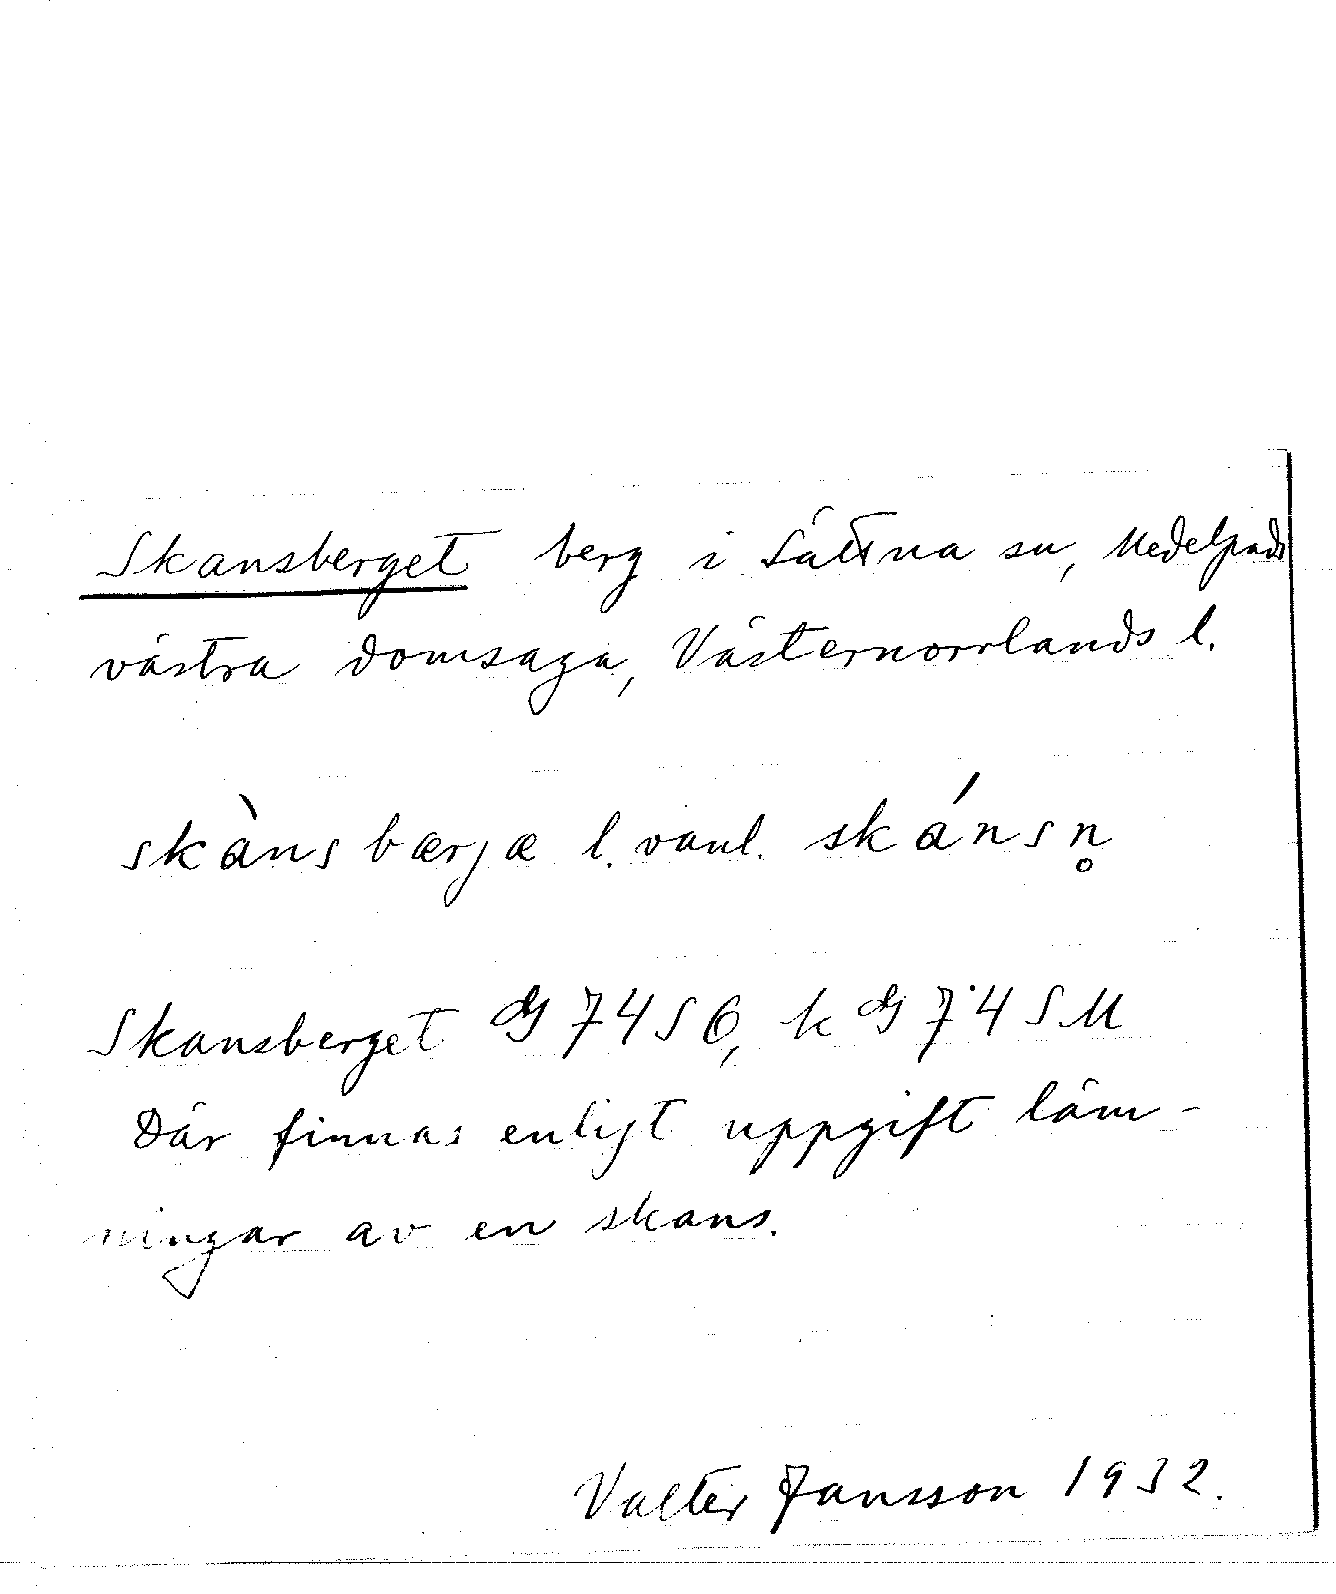 Skansberget berg i Sättna sn, Medelpads
västra domsaga, Västernorrlands l.
skànsbærjæ l. vanl. skánsn̥
Skansberget GJ 74 SÖ, k GJ 74 SM
Där finnas enligt uppgift läm-
ningar av en skans.
Valter Jansson 1932.